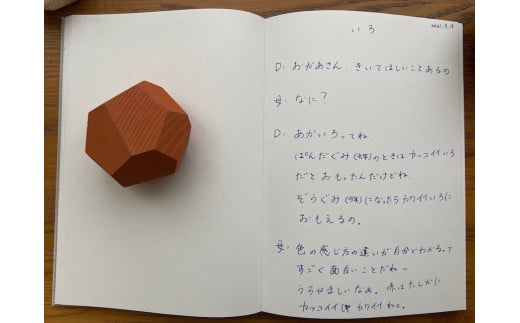 いろ
2021.9.18
D: おかあさん、きいてほしいことあるの
母: なに?
D: あかいろってね
ぱんだぐみ(去年)のときはカッコイイいろ
だとおもったんだけどね、
ぞうぐみ(今年)になったらカワイイいろに
おもえるの。
母: 色の感じ方の違いが自分でわかるって
すごく面白いことだね〜
うらやましいなぁ。赤はたしかに
カッコイイしカワイイねと。